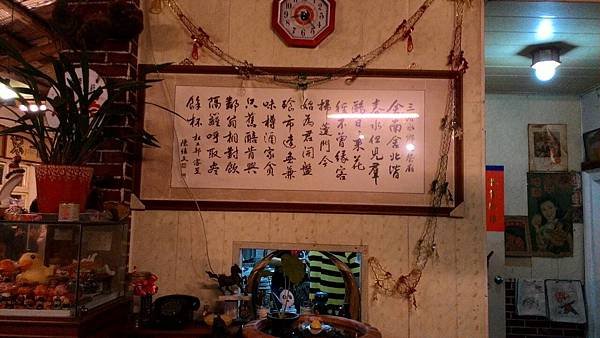 舍南舍北皆
春水但見群
鷗日日來花
徑不曾緣客
掃蓬門今
始為君開盤
飧市遠無兼
味樽酒家貧
只舊醅肯與
鄰翁相對飲
隔籬呼取盡
餘杯 杜工部客至